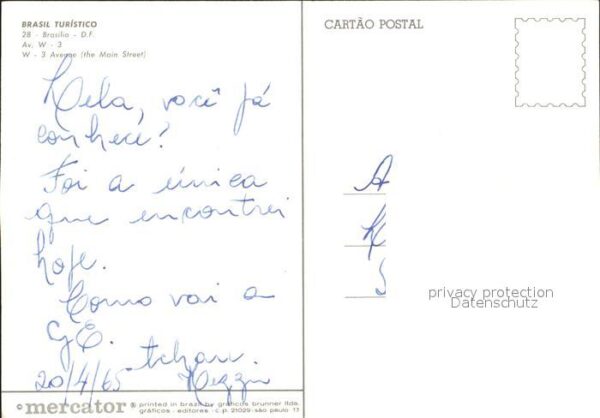 BRASIL TURÍSTICO
28 - Brasília - D.F.
Av. W - 3
W - 3 Avenue (the Main Street)
CARTÃO POSTAL
você já
conhece?
Foi a única
que encontrei
hoje.
Como vai a
GE.
tchau.
20/4/65
A
K
S
privacy protection
Datenschutz
© mercator® printed in brazil by gráficos brunner ltda.
gráficos - editores - c.p. 21029 - são paulo 13